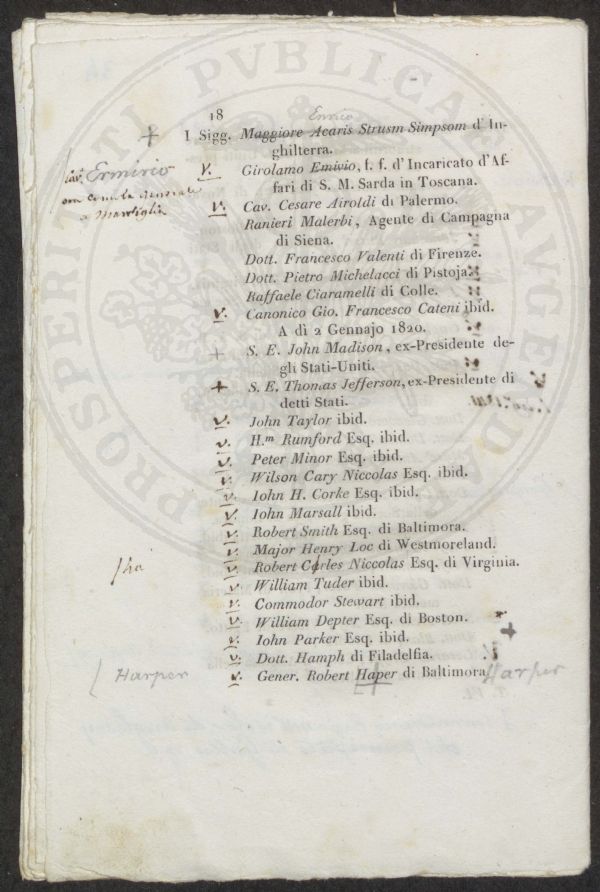 PROSPERITATI PVBLICAE AVGENDAE
18
Enrico
I Sigg. Maggiore Acaris Strusm Simpsom d'In-
ghilterra.
Ermirio
V. Girolamo Emivio, f. f. d'Incaricato d'Af-
fari di S. M. Sarda in Toscana.
a Marsiglia
V. Cav. Cesare Airoldi di Palermo.
Ranieri Malerbi, Agente di Campagna
di Siena.
Dott. Francesco Valenti di Firenze.
Dott. Pietro Michelacci di Pistoja.
Raffaele Ciaramelli di Colle.
V. Canonico Gio. Francesco Cateni ibid.
A dì 2 Gennajo 1820.
+ S. E. John Madison, ex-Presidente de-
gli Stati-Uniti.
+ S. E. Thomas Jefferson, ex-Presidente di
detti Stati.
V. John Taylor ibid.
V. H.m Rumford Esq. ibid.
V. Peter Minor Esq. ibid.
V. Wilson Cary Niccolas Esq. ibid.
V. Iohn H. Corke Esq. ibid.
V. Iohn Marsall ibid.
V. Robert Smith Esq. di Baltimora.
V. Major Henry Loc di Westmoreland.
V. Robert Carles Niccolas Esq. di Virginia.
V. William Tuder ibid.
V. Commodor Stewart ibid.
V. William Depter Esq. di Boston.
V. Iohn Parker Esq. ibid.
V. Dott. Hamph di Filadelfia.
Harper V. Gener. Robert Haper di Baltimora Harper